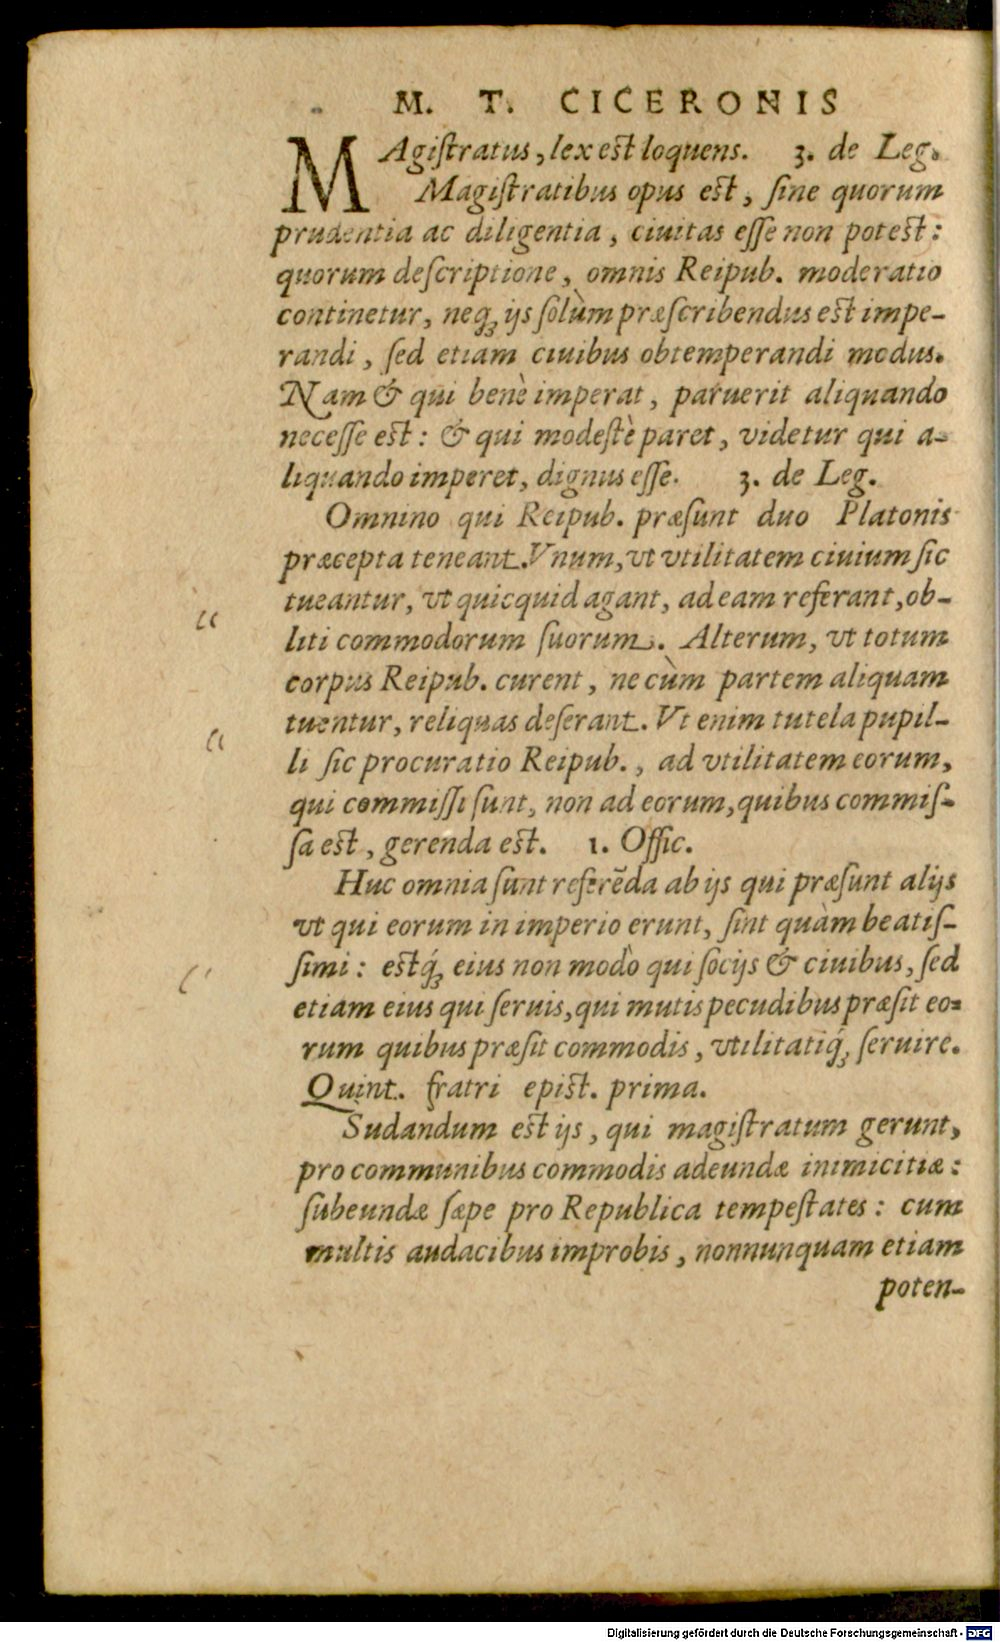 M. T. CICERONIS
MAgiſtratus, lex est loquens. 3. de Leg.
Magiſtratibus opus est, ſine quorum
prudentia ac diligentia, ciuitas eſſe non potest:
quorum deſcriptione, omnis Reipub. moderatio
continetur, neq́ꝫ ijs ſolùm præſcribendus est impe-
randi, ſed etiam ciuibus obtemperandi modus.
Nam & qui benè imperat, paruerit aliquando
neceſſe est: & qui modeſtè paret, videtur qui a-
liquando imperet, dignus eſſe. 3. de Leg.
Omnino qui Reipub. præſunt duo Platonis
præcepta teneant. Vnum, vt vtilitatem ciuium ſic
tueantur, vt quicquid agant, ad eam referant, ob-
liti commodorum ſuorum. Alterum, vt totum
corpus Reipub. curent, ne cùm partem aliquam
tuentur, reliquas deſerant. Vt enim tutela pupil-
li ſic procuratio Reipub., ad vtilitatem eorum,
qui commiſſi ſunt, non ad eorum, quibus commiſ-
ſa est, gerenda est. 1. Offic.
Huc omnia ſunt referẽda ab ijs qui præſunt alijs
vt qui eorum in imperio erunt, ſint quàm beatiſ-
ſimi: estq́ꝫ eius non modò qui ſocijs & ciuibus, ſed
etiam eius qui ſeruis, qui mutis pecudibus præſit eo-
rum quibus præſit commodis, vtilitatiq́ꝫ ſeruire.
Quint. fratri epist. prima.
Sudandum est ijs, qui magiſtratum gerunt,
pro communibus commodis adeundæ inimicitiæ:
ſubeundæ ſæpe pro Republica tempeſtates: cum
multis audacibus improbis, nonnunquam etiam
poten-
Digitalisierung gefördert durch die Deutsche Forschungsgemeinschaft - DFG